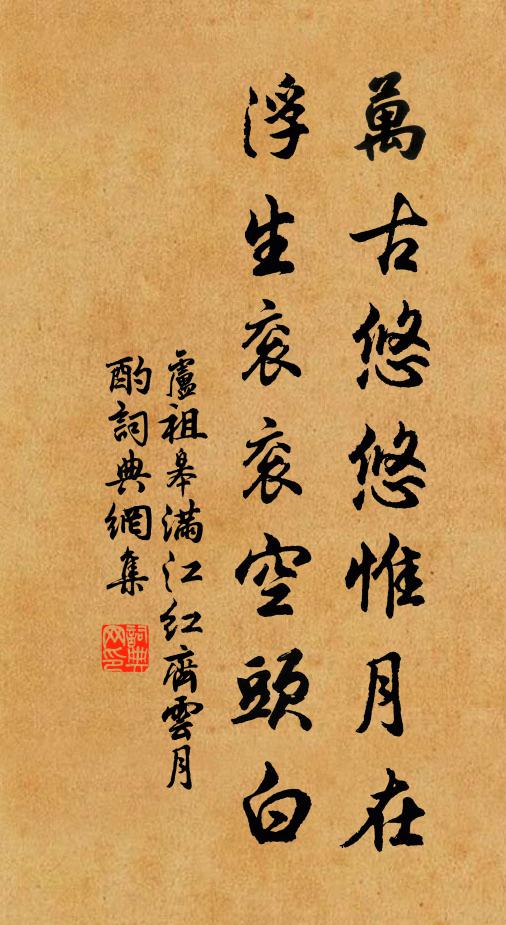 萬古悠悠惟月在
浮生衮衮空頭白
盧祖皋滿江紅齊雲月
酌詞典網集
詞典网印